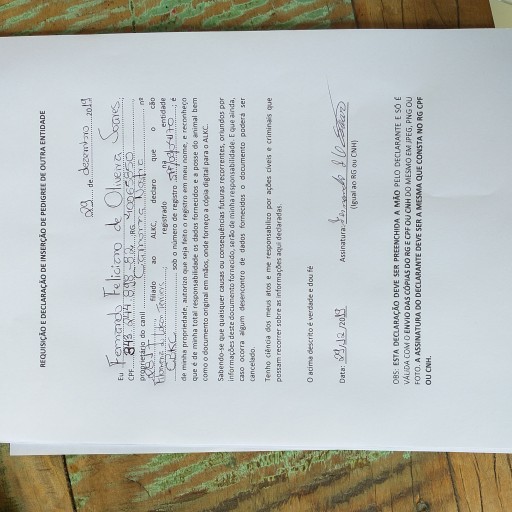 REQUISIÇÃO E DECLARAÇÃO DE INSERÇÃO DE PEDIGREE DE OUTRA ENTIDADE
29 de dezembro 2019
Eu Fernando Feliciano de Oliveira Soares
CPF RG
proprietário do canil na
filiado ao ALKC, declaro que o cão
registrado na entidade
sob o número de registro é
de minha propriedade, autorizo que seja feito o registro em meu nome, e reconheço
que é de minha total responsabilidade os dados fornecidos e a posse do animal bem
como o documento original em mãos, onde forneço a cópia digital para o ALKC.
Sabendo-se que quaisquer causas ou consequências futuras recorrentes, oriundos por
informações deste documento fornecido, serão de minha responsabilidade. E que ainda,
caso ocorra algum desencontro de dados fornecidos o documento poderá ser
cancelado.
Tenho ciência dos meus atos e me responsabilizo por ações cíveis e criminais que
possam recorrer sobre as informações aqui declaradas.
O acima descrito é verdade e dou fé
Data: 29/12/2019 Assinatura:
(Igual ao RG ou CNH)
OBS: ESTA DECLARAÇÃO DEVE SER PREENCHIDA A MÃO PELO DECLARANTE E SÓ É
VÁLIDA COM O ENVIO DAS CÓPIAS DO RG E CPF OU CNH DO MESMO EM JPEG, PNG OU
FOTO. A ASSINATURA DO DECLARANTE DEVE SER A MESMA QUE CONSTA NO RG CPF
OU CNH.